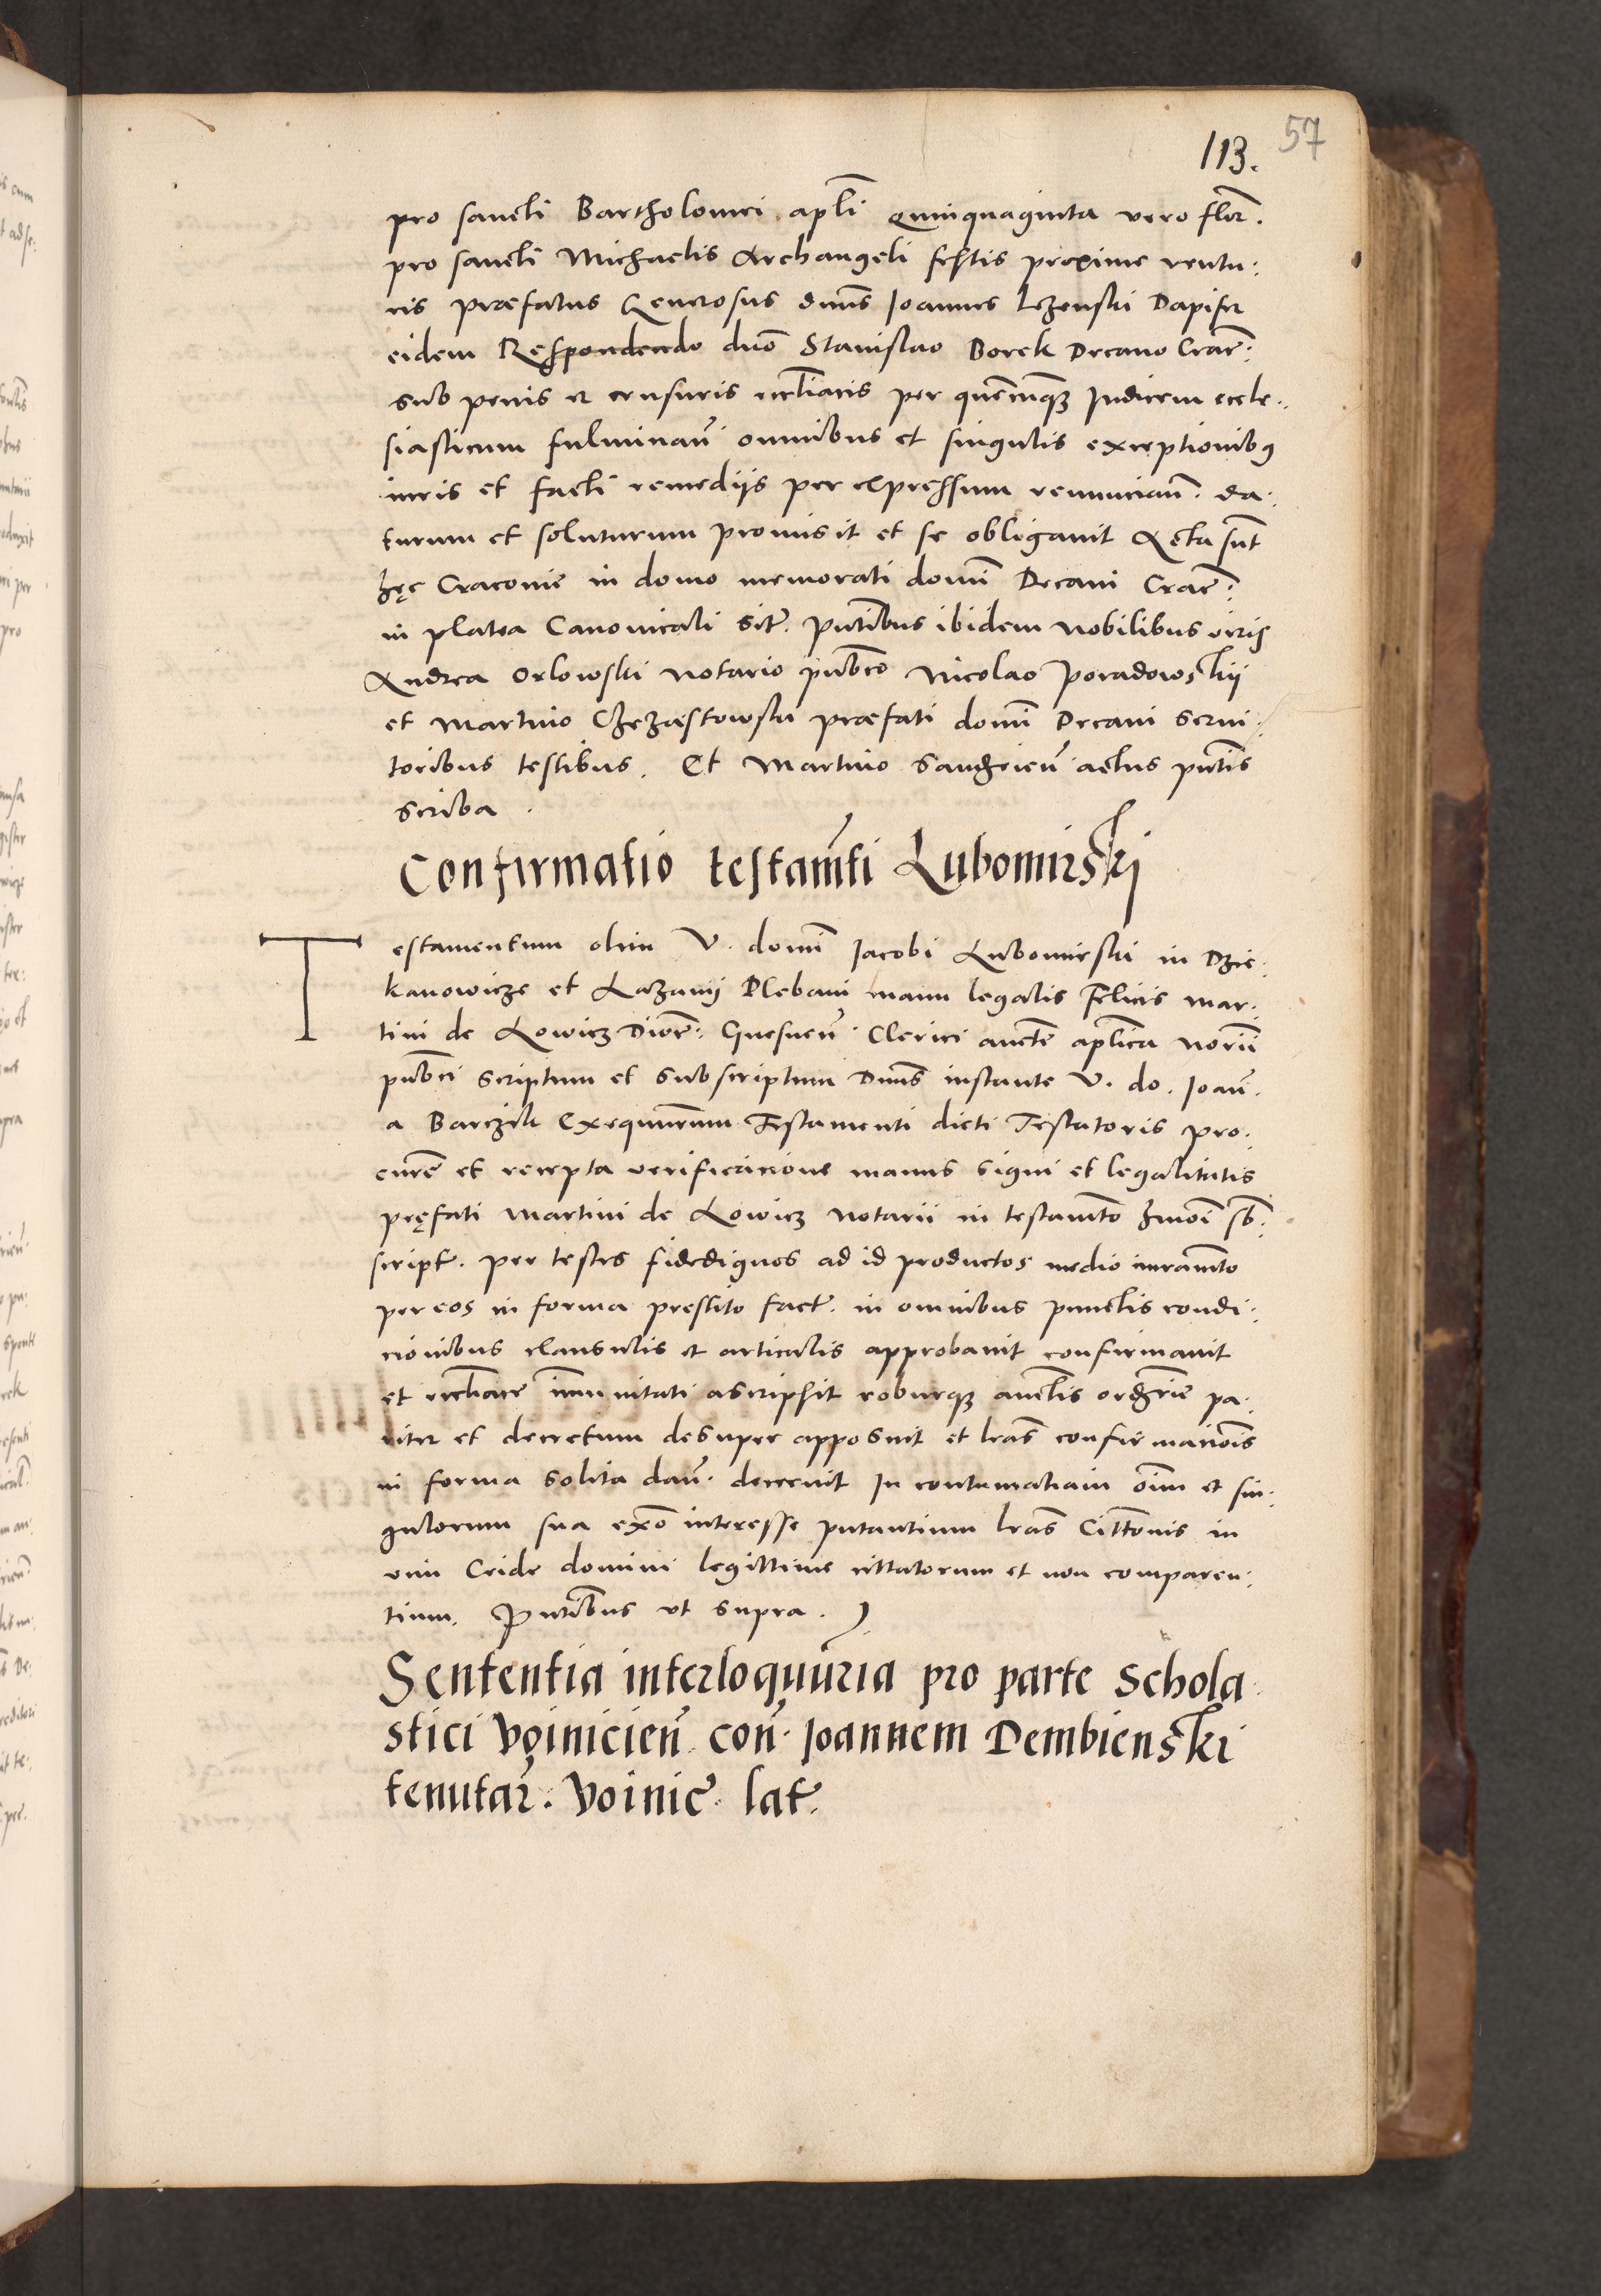 113. 57
pro sancti Bartholomei apłi Quinquaginta vero flor̃.
pro sancti Michaelis Archangeli festis proxime ventu:
ris præfatus Generosus dnũs Joannes Lezenski Dapifer
eidem Respondendo dno Stanislao Borek Decano Crac̃:
sub penis et censuris eccl̃iacis per quẽcũq Judicem eccle:
siasticum fulminan̄ omnibus et singulis exceptionibus
iuris et facti remediis per expressum renuncian̄. da:
turum et soluturum promisit et se obligavit Acta sũt
hęc Cracoviæ in domo memorati domĩ Decani Crac̃:
in platea Canonicali sit̃. pñtibus ibidem nobilibus viris
Andrea Orlowski notario publ̃co Nicolao Poradowskij
et Martino Chezastowski præfati domĩ Decani servi:
toribus testibus. Et Martino Sandzien̄ actus pñtis
scriba.
Confirmatio testam̃ti Lubomirski
Testamentum olim V. domĩ Jacobi Lubomirski in Dzie:
kanowicze et Lazanij Plebani manu legalis Felicis Mar:
tini de Lowicz Dioc̃: Gnesnen̄. Clerici auctẽ aplica norii
publ̃ci scriptum et subscriptum Dnũs instante V. do. Joan̄.
a Barczik Exequutorum Testamenti dicti Testatoris pro:
curẽ et recepta verificacione manus signi et legalitatis
pręfati Martini de Lowicz notarii in testam̃to hmõi sb:
script̃. per testes fidedignos ad id productos medio iuram̃to
per eos in forma prestito fact̃. in omnibus punctis condi:
cionibus clausulis et articulis approbavit confirmavit
et eccl̃iace im̃unitati ascripsit roburq auct̃is ordĩrie pa:
riter et decretum desuper apposuit et lr̃as confirmaciõis
in forma solita dan̄. decrevit In contumatiam oĩm et sin:
gulorum sua exõ interesse putantium lr̃as Citt̃onis in
vim Cride domini legittime cittatorum et non comparen:
tium. Pñtibus ut supra.
Sententia interloquut̃ria pro parte Schola
stici Voinicien̄ con̄. Joannem Dembienski
tenutar̃: Voinic̃. lat̃.